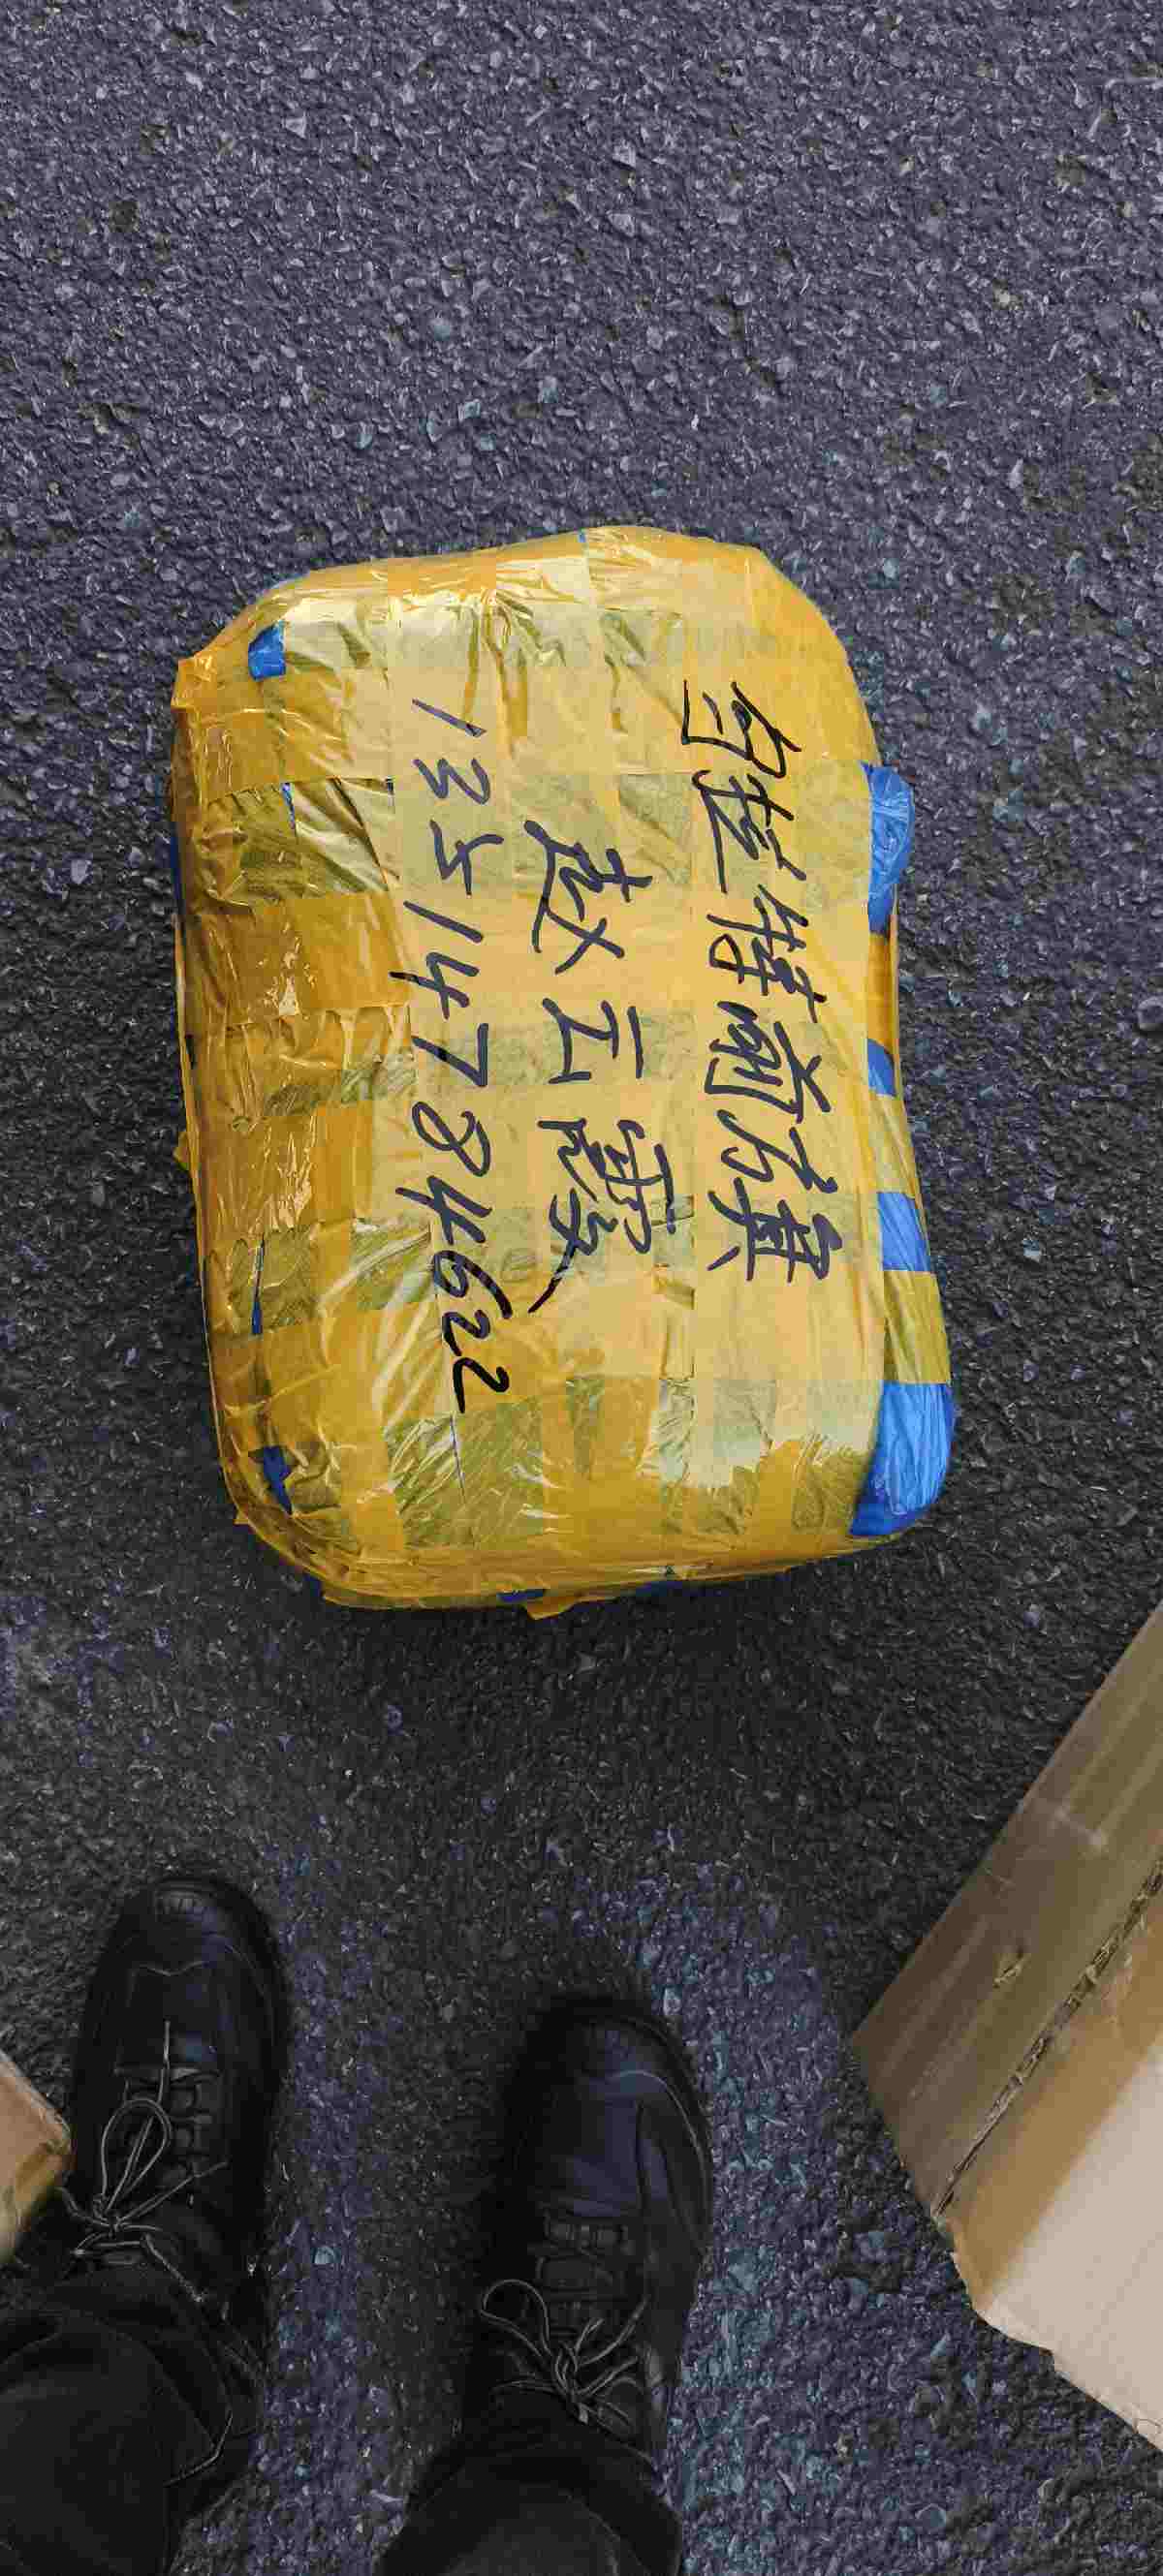 乌拉特前旗
赵云霞
13514784622